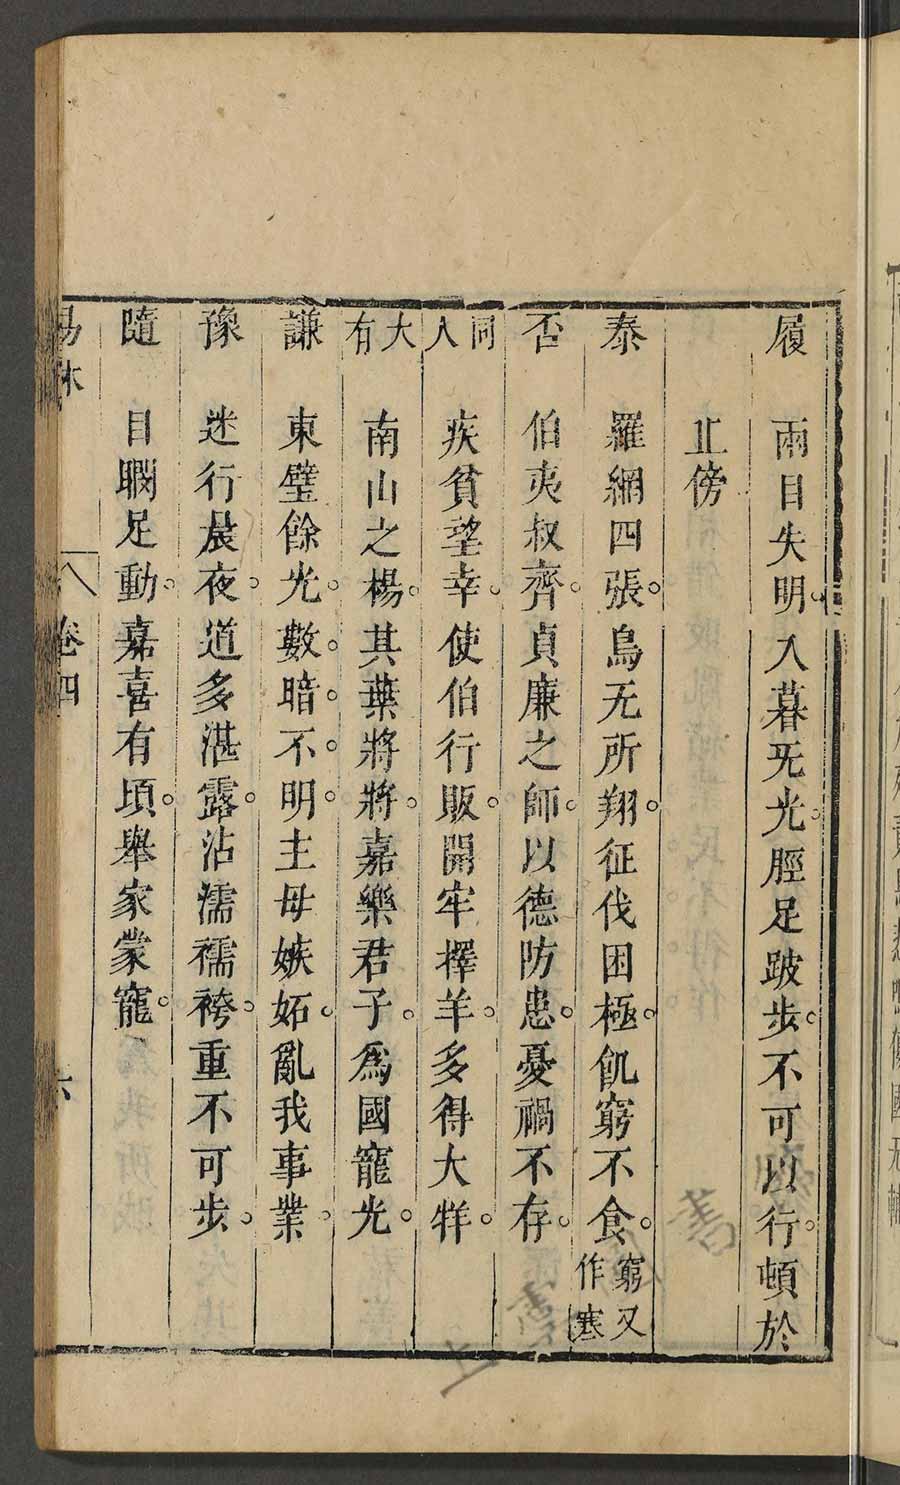 履 兩目失明。入暮旡光。脛足跛步。不可以行。頓於
止傍
泰 羅網四張。鳥无所翔。征伐困極。飢窮不食。窮又作寒
否 伯夷叔齊。貞廉之師。以德防患。憂禍不存。
同人 疾貧望幸。使伯行販。開牢擇羊。多得大牂。
大有 南山之楊。其葉將將。嘉樂君子。爲國寵光。
謙 東璧餘光。數暗。不。明。主母嫉妬。亂我事業。
豫 迷行晨夜。道多湛露。沾濡襦袴。重不可步。
隨 目瞤足動。嘉喜有頃。舉家蒙寵。
易林 卷四 六